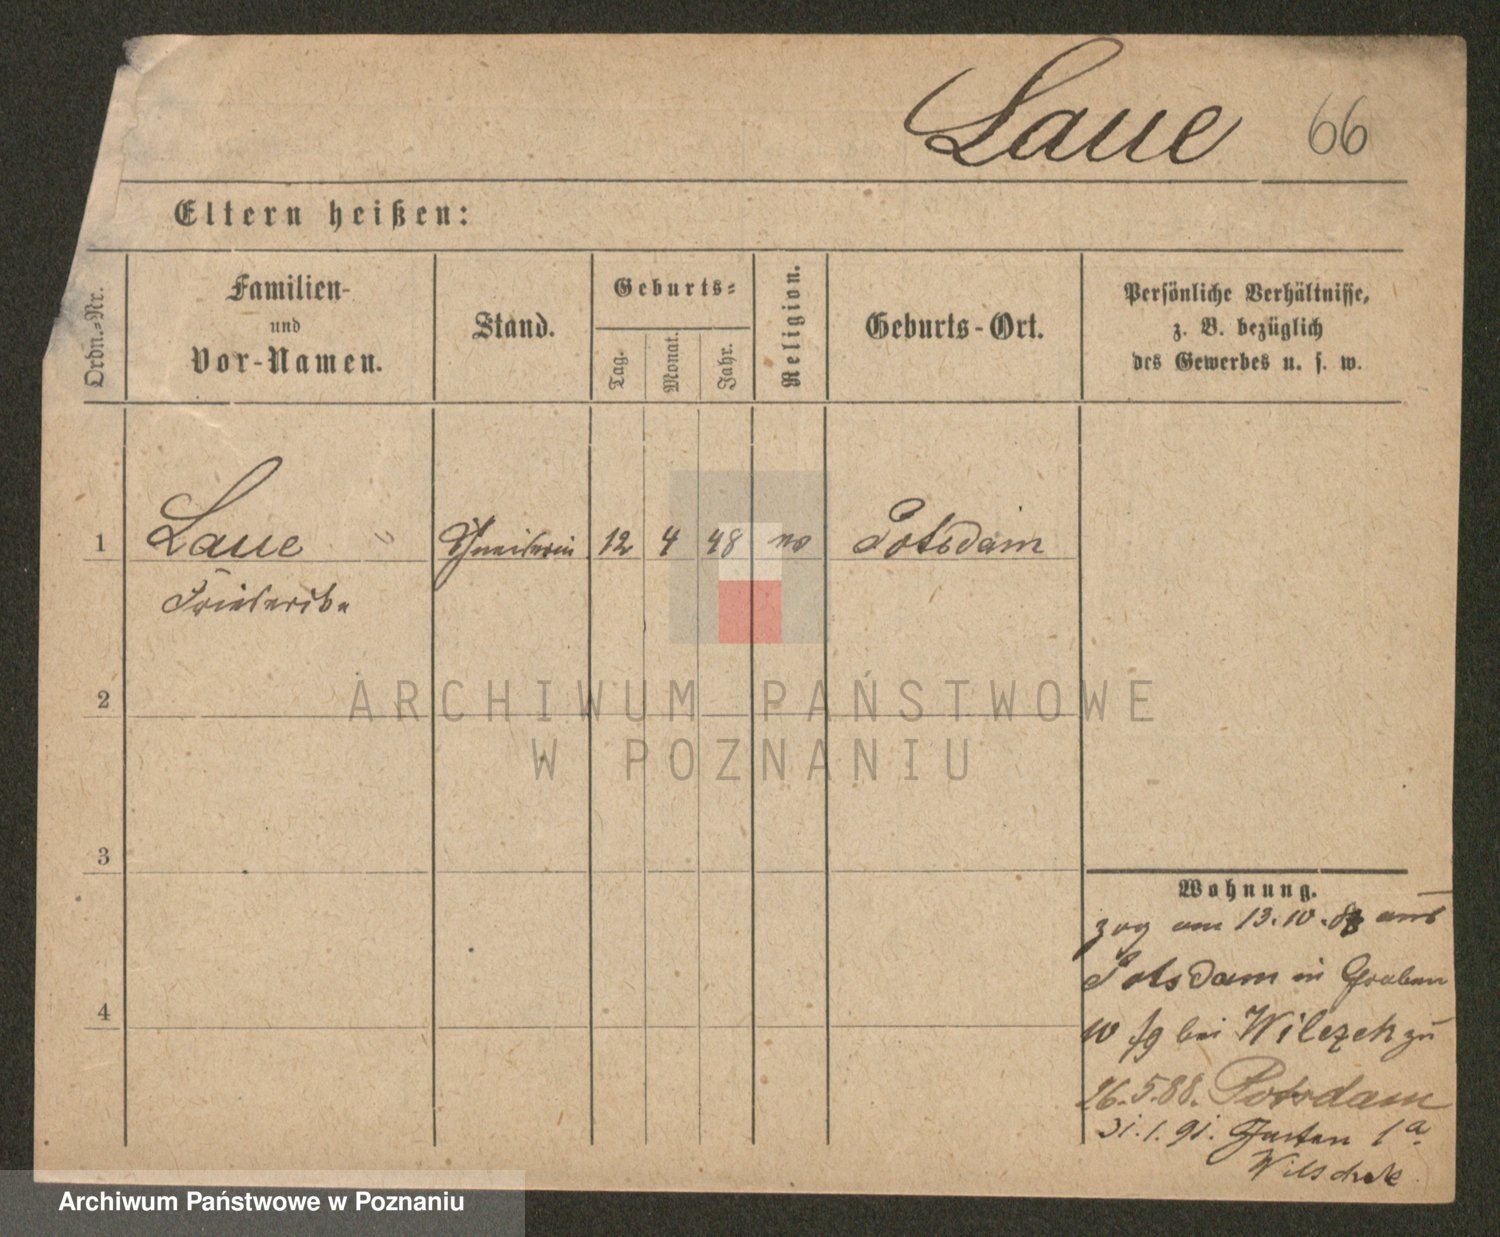 Laue 66
Eltern heißen:
Ordn.-Nr.
Familien-
und
Vor-Namen.
Stand.
Geburts-
Tag.
Monat.
Jahr.
Religion.
Geburts-Ort.
Persönliche Verhältnisse,
z. B. bezüglich
des Gewerbes u. s. w.
1 Laue Schneiderin 12 4 48 Potsdam
Friederike
2
3
4
Wohnung.
zog am 13.10. aus
Potsdam in Graben
bei Wilczek zu
26.5.88. Potsdam
31.1.91. Garten 1a.
Wilscheck
ARCHIWUM PAŃSTWOWE
W POZNANIU
Archiwum Państwowe w Poznaniu